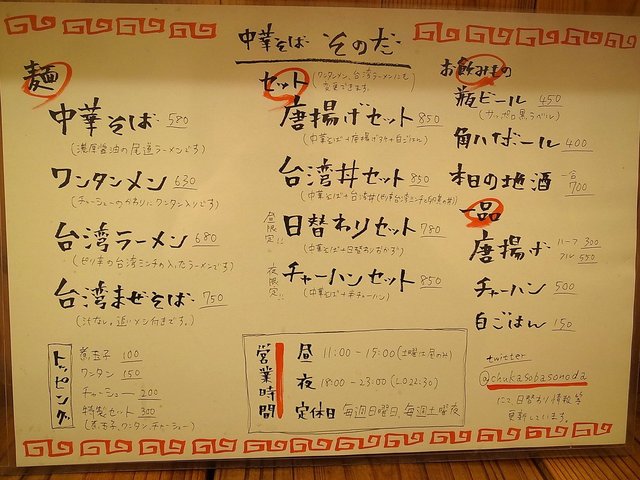 中華そば そのだ
麺
中華そば 580
(濃厚醤油の尾道ラーメンです)
ワンタンメン 630
(チャーシューのかわりにワンタン入りです)
台湾ラーメン 680
(ピリ辛の台湾ミンチの入ったラーメンです)
台湾まぜそば 750
(汁なし。追いメシ付きです。)
トッピング
煮玉子 100
ワンタン 150
チャーシュー 200
特製セット 300
(煮玉子、ワンタン、チャーシュー)
セット
(ワンタンメン、台湾ラーメンにも
変更できます。
唐揚げセット 850
(中華そば+唐揚げ+白ごはん)
台湾丼セット 850
昼限定!!
日替わりセット 780
(中華そば+日替わりおかず)
夜限定!!
チャーハンセット 850
(中華そば+半チャーハン)
営業時間
昼 11:00-15:00(土曜は昼のみ)
夜 18:00-23:00(L.O22:30)
定休日 毎週日曜日、毎週土曜夜
お飲みもの
瓶ビール 450
(サッポロ黒ラベル)
角ハイボール 400
本日の地酒 一合 700
一品
唐揚げ ハーフ 300
フル 550
チャーハン 500
白ごはん 150
twitter
@chukasobasonoda
にて日替わり情報等
更新しています。